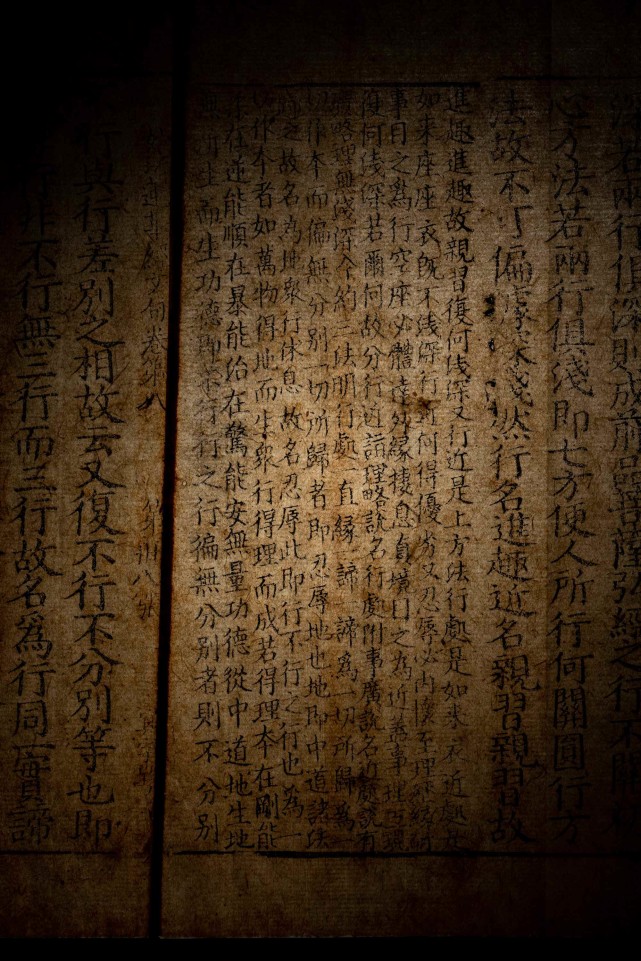 深若兩行俱深則成前品菩薩弘經之行不關
心方法若兩行俱淺即七方便人所行何關圓行方
法故不可偏深淺然行名進趣近名親習親習故
進趣進趣故親習復何淺深又行近是上方法行處是如來衣近處是
如來座座衣既不淺深行近何得優劣又忍辱必內懷至理
事目之為行空座必體達外緣棲息貞境目之為近
復何淺深若爾何故分行近語理略說名行處附事廣說名近處說有
略理無淺深今約三法明行處一直緣一諦一諦為一切所歸為一
切作本而徧無分別一切所歸者即忍辱地也地即中道諸法
之故名為地眾行休息故名忍辱此即行不行之行也為一
切作本者如萬物得地而生眾行得理而成若得理本在剛能
在逆能順在暴能治在驚能安無量功德從中道地生地
無所生而生功德即不行之行徧無分別者則不分別
卷第八 第卅八張
行與行差別之相故云又復不行不分別等也即
行非不行無三行而三行故名為行同一實諦